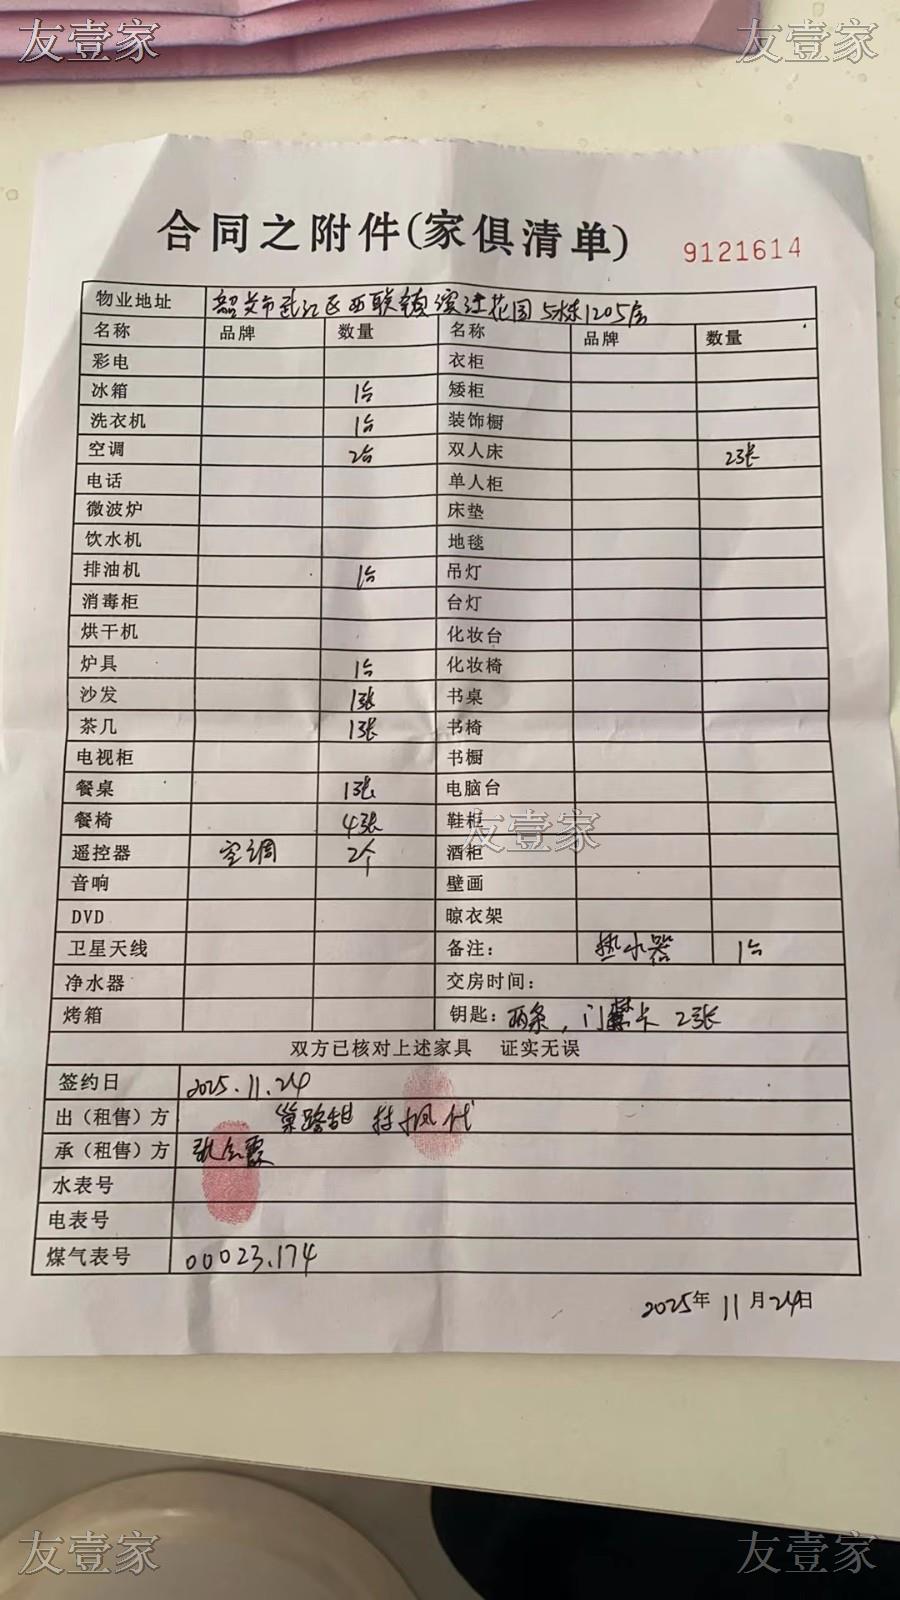 友壹家 友壹家
合同之附件(家俱清单) 9121614
物业地址 韶关市武江区西联镇滨江花园5栋1205房
名称 品牌 数量 名称 品牌 数量
彩电 衣柜
冰箱 1台 矮柜
洗衣机 1台 装饰橱
空调 2台 双人床 2张
电话 单人柜
微波炉 床垫
饮水机 地毯
排油机 1台 吊灯
消毒柜 台灯
烘干机 化妆台
炉具 1台 化妆椅
沙发 1张 书桌
茶几 1张 书椅
电视柜 书橱
餐桌 1张 电脑台
餐椅 4张 鞋柜
友壹家
遥控器 空调 2个 酒柜
音响 壁画
DVD 晾衣架
卫星天线 备注: 热水器 1台
净水器 交房时间:
烤箱 钥匙: 两条,门禁卡2张
双方已核对上述家具 证实无误
签约日 2025.11.24
出(租售)方 代
承(租售)方
水表号
电表号
煤气表号 00023.174
2025年11月24日
友壹家 友壹家